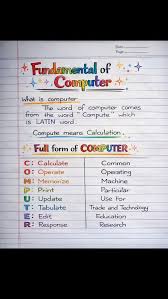 Date
Page
Fundamental of
Computer
What is computer
The word of computer comes
from the word "Compute" which
is LATIN word.
Compute means Calculation.
Full form of COMPUTER
C: Calculate Common
O: Operate Operating
M: Memorize Machine
P: Print Particular
U: Update Use For
T: Tabulate Trade and Technology
E: Edit Education
R: Response Research